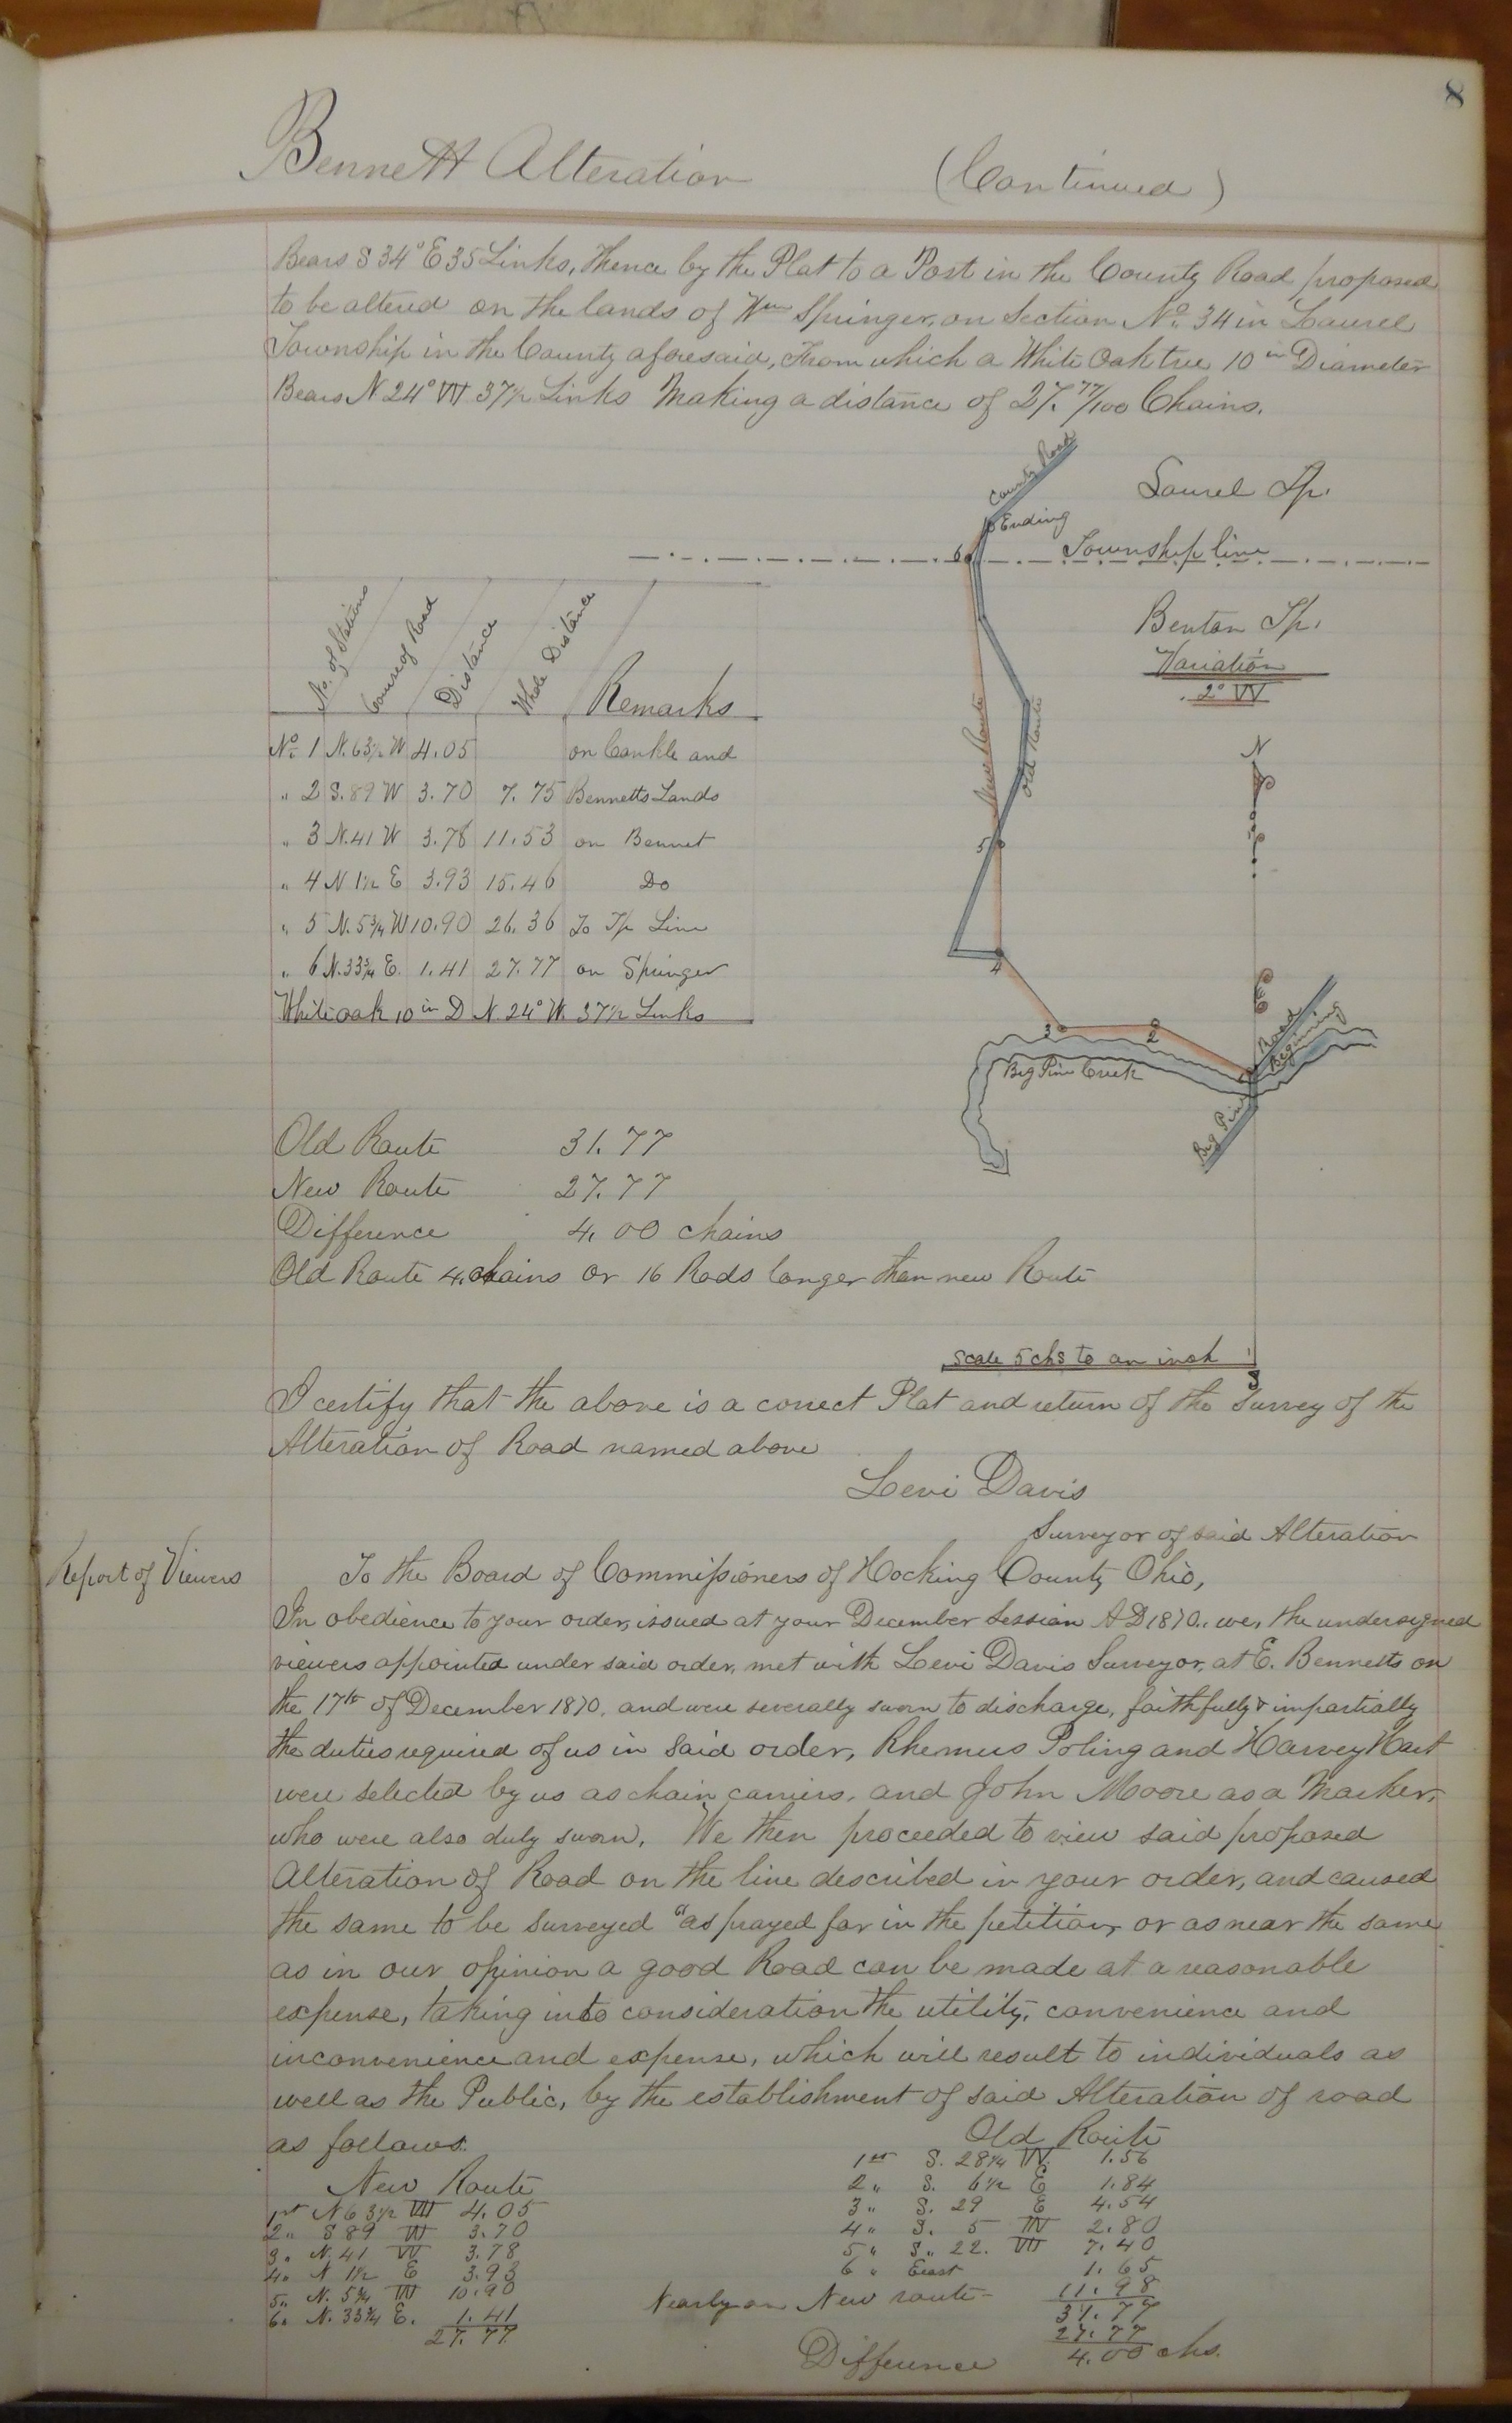 8
Bennett Alteration (Continued)
Bears S 34° E 35 Links, Thence by the Plat to a Post in the County Road proposed
to be altered on the lands of Wm Springer, on Section No. 34 in Laurel
Township in the County aforesaid, From which a White Oak tree 10 in Diameter
Bears N 24° W 37½ Links Making a distance of 27.77/100 Chains.
County Road
Laurel Tp.
Ending
6
Township line
Benton Tp.
Variation
2° W
New Route
Old Route
N
5
4
3
2
Big Pine Creek
Road
Begining
Big Pine
No. of Stations Course of Road Distance Whole Distance Remarks
No. 1 N. 63½ W 4.05 on Conkle and
" 2 S. 89 W 3.70 7.75 Bennetts Lands
" 3 N. 41 W 3.78 11.53 on Bennet
" 4 N 1½ E 3.93 15.46 Do
" 5 N. 5¾ W 10.90 26.36 To Tp Line
" 6 N. 33¾ E. 1.41 27.77 on Springer
White oak 10 in D N. 24° W. 37½ Links
Old Route 31.77
New Route 27.77
Difference 4.00 chains
Old Route 4. chains or 16 Rods longer than new Route
Scale 5 chs to an inch
S
I certify that the above is a correct Plat and return of the Survey of the
Alteration of Road named above
Levi Davis
Surveyor of said Alteration
Report of Viewers
To the Board of Commissioners of Hocking County Ohio,
In obedience to your order, issued at your December Session AD 1870., we, the undersigned
viewers appointed under said order, met with Levi Davis Surveyor, at E. Bennetts on
the 17th of December 1870, and were severally sworn to discharge, faithfully & impartially
the duties required of us in said order, Rhemus Poling and Harvey Hart
were selected by us as chain carriers, and John Moore as a Marker,
who were also duly sworn. We then proceeded to view said proposed
Alteration of Road on the line described in your order, and caused
the same to be surveyed "as prayed for in the petition, or as near the same
as in our opinion a good Road can be made at a reasonable
expense, taking into consideration the utility, convenience and
inconvenience and expense, which will result to individuals as
well as the Public, by the establishment of said Alteration of road
as follows.
New Route
1st N 63½ W 4.05
2" S 89 W 3.70
3" N. 41 W 3.78
4" N 1½ E 3.93
5" N. 5¾ W 10.90
6" N. 33¾ E. 1.41
27.77
Old Route
1st S. 28¼ W. 1.56
2" S. 6½ E 1.84
3" S. 29 E 4.54
4" S. 5 W 2.80
5" S. 22. W 7.40
6" East 1.65
Nearly on New route 11.98
31.77
27.77
Difference 4.00 chs.